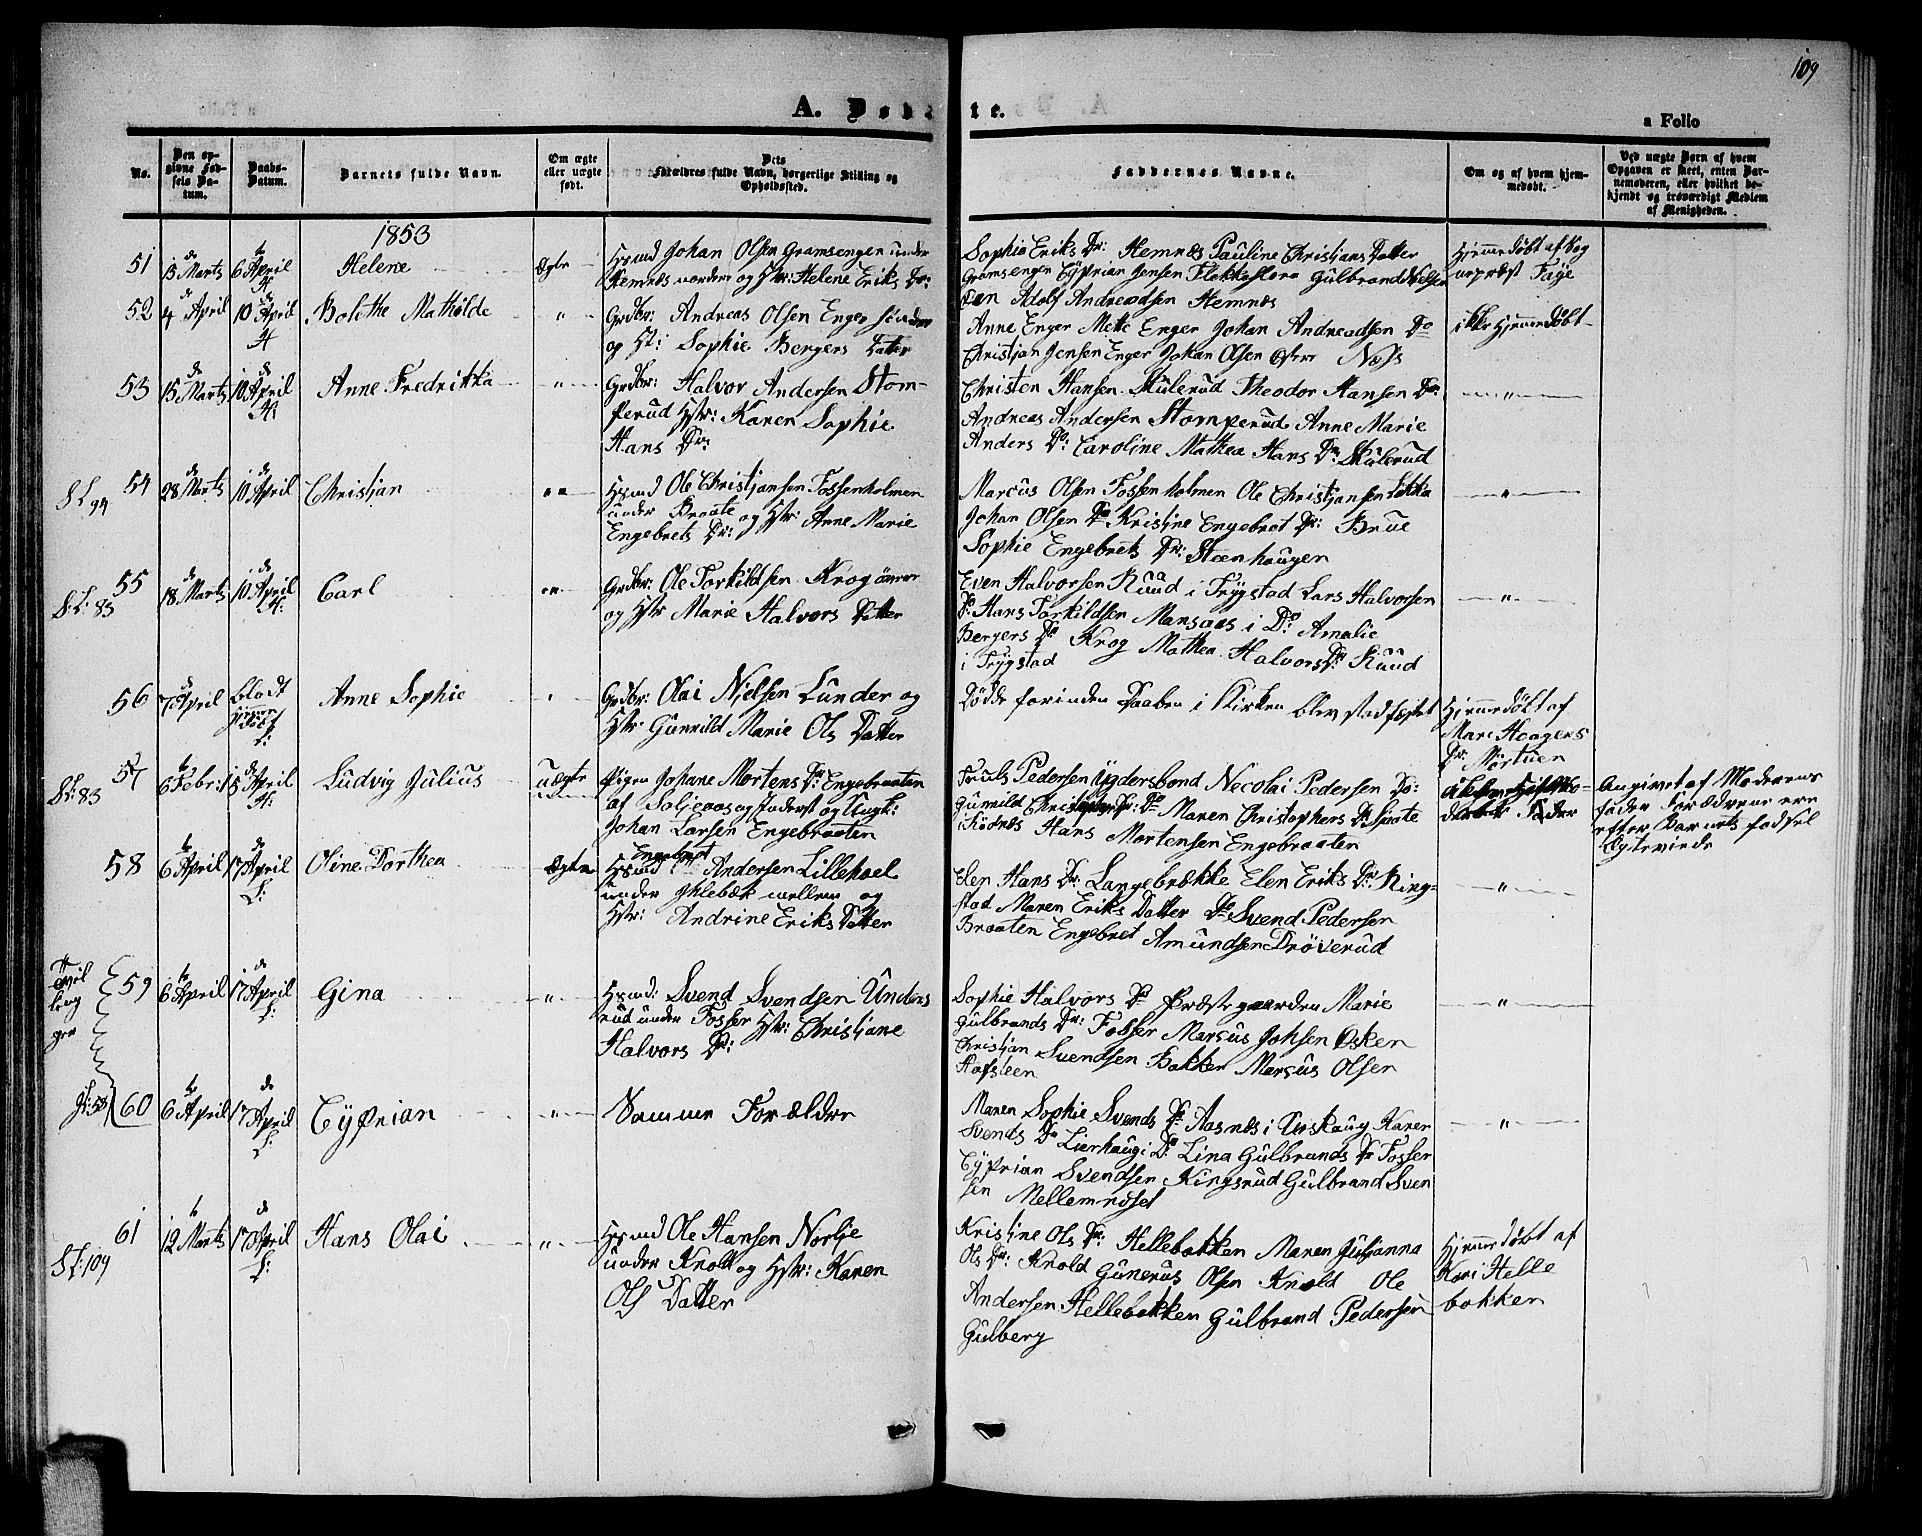 109
A. Døbte.
a Folio
No.
Den opgivne Fødsels Datum.
Daabs-Datum.
Barnets fulde Navn.
Om ægte eller uægte født.
Dets Forældres fulde Navn, borgerlige Stilling og Opholdssted.
Faddernes Navne.
Om og af hvem hjemmedøbt.
Ved uægte Børn af hvem Opgaven er skeet, enten Barnemoderen, eller hvilket bekjendt og troværdigt Medlem af Menigheden.
1853
51 13 Marts 6 April H Helene Ægte
Hsmd Johan Olsen Gramsengen under
Hemnæs nordre og Hstr: Helene Eriks Dr:
Sophie Eriks Dr: Hemnæs Pauline Christians Datter
Gramsengen Cyprian Jensen Flakkestora Gulbrand
Adolf Andreadsen Hemnæs
Hjemmedøbt af Sog
nepræst Faye
52 4 April 10 April H Bolethe Mathilde "
Grdbr: Andreas Olsen Enger søndre
og H: Sophie Bergers Datter
Anne Enger Mette Enger Johan Andreadsen Do
Christjan Jensen Enger Johan Olsen Næss
ikke Hjemmedøbt
53 15 Marts 10 April H: Anne Fredrikka "
Grdbr: Halvor Andersen Stom-
perud Hstr: Karen Sophie
Hans Dr:
Christen Hansen Skulerud Theodor Hansen Do
Andreas Andersen Stomperud Anne Marie
Anders Dr: Caroline Mathea Hans Dr Skulerud
"
S L 94
54 28 Marts 10 April Christjan "
Hsmd Ole Christjansen Fossenholmen
under Braate og Hstr: Anne Marie
Engebrets Dr:
Marcus Olsen Fossenholmen Ole Christjansen Løkka
Johan Olsen Do Kristine Engebret Dr: Brue
Sophie Engebrets Dr: Steenhaugen
"
S: L: 83
55 18 Marts 10 April H: Carl "
Grdbr: Ole Torkildsen Krog
og Hstr Marie Halvors Datter
Even Halvorsen Ruud i Trygstad Lars Halvorsen
Do: Hans Torkildsen Mansaas i Do: Amalie
Bergers Dr Krog Mathea Halvors Dr: Ruud
i Trygstad
"
56 7 April blodt Hjemmedøbt Anne Sophie "
Grdbr: Olai Nielsen Lunder og
Hstr Gunnild Marie Ols Datter
Døde forinden Daaben i Kirken blev stadfæstet
Hjemmedøbt af
Mari Haagens
Dr: Mørtuen
S L: 83
57 6 Febr: 15 April H: Ludvig Julius uægte
Pigen Johane Mortens Dr: Engebraaten
af Soljeaas og Inderst og Ungk:
Johan Larsen Engebraaten
Truls Pedersen Ydersbond Necolai Pedersen Do:
Gunnild Christophers Dr: Do Maren Christophers Dr
i Rødnæs Hans Mortensen Engebraaten
Angivet af Moderens
fader Forældrene ere
efter Barnets fødsel
Egteviede
58 6 April 17 April L: Oline Dorthea Ægte
Engebret
Hsmd Andersen Lillehoel
under Ihlebæk mellem og
Hstr: Andrine Eriks Datter
Elen Hans Dr: Langebrække Elen Eriks Dr: Ring-
stad Maren Eriks Datter Do Svend Pedersen
Braaten Engebret Amundsen Drøverud
"
Tvil
ling
ger
59 6 April 17 April L: Gina "
Hsmd: Svend Svendsen Unders
rud under Fosser Hstr: Christjane
Halvors Dr:
Sophie Halvors Dr Præstegaarden Marie
Gulbrands Dr: Fosser Marcus Johsen Osken
Christjan Svendsen Bakken Marcus Olsen
Hafsteen
"
60 6 April 17 April L: Cyprian "
Samme Forældre
Maren Sophie Svends Dr Aasnæs i Urskaug Karen
Svends Dr Lierhaug i Do: Lina Gulbrands Dr Fosser
Cyprian Svendsen Kingsrud Gulbrand Sven
sen Mellemnæset
"
S L: 109
61 12 Marts 17 April L: Hans Olai "
Hsmd Ole Hansen Norlie
under Knold og Hstr: Karen
Ols Datter
Kristine Ols Dr: Hellebakken Maren Julianna
Ols Dr: Knold Gunerus Olsen Knold Ole
Andersen Hellebakken Gulbrand Pedersen
Gulberg
Hjemmedøbt af
Kari Helle
bakken